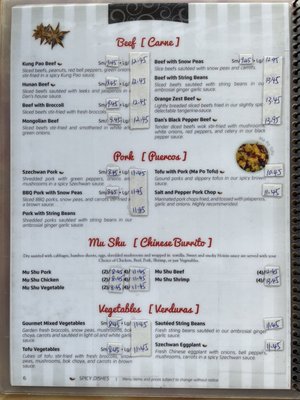 Beef [ Carne ]
Kung Pao Beef
Sliced beef, peanuts, red bell peppers, green onion
stir-fried in a spicy Kung Pao sauce.
Hunan Beef
Sliced beef sautéed with leeks and
Dan's house sauce.
Beef with Broccoli
Sliced beef stir-fried with fresh broccoli.
Mongolian Beef
Sliced beef stir-fried and smothered in white and
green onions.
Beef with Snow Peas
Slice beefs sautéed with snow peas and carrots.
Beef with String Beans
Sliced beef sautéed with string beans in our
ambrosial ginger garlic sauce.
Orange Zest Beef
Lightly breaded sliced beef fried in our slightly spicy
delectable tangerine sauce.
Dan's Black Pepper Beef
Tender sliced beefs wok stir-fried with mushrooms,
white onions, red peppers, and celery in our black
pepper sauce.
Pork [ Puercos ]
Szechwan Pork
Shredded pork with green peppers, onions,
mushrooms in a spicy Szechwan sauce.
BBQ Pork with Snow Peas
Sliced BBQ porks, snow peas, and carrots
in a brown sauce.
Pork with String Beans
Shredded porks sautéed with string beans in our
ambrosial ginger garlic sauce.
Tofu with Pork (Ma Po Tofu)
Ground porks and slippery tofus in our spicy brown
sauce.
Salt and Pepper Pork Chop
Marinated pork chops fried, and tossed with jalapenos,
garlic and onions. Highly recommended!
Mu Shu [ Chinese Burrito ]
Mu Shu Pork (2)/ 8.45 (4)/ 11.45
Mu Shu Chicken (2)/ 8.45 (4)/ 11.45
Mu Shu Vegetable (2)/ 8.45 (4)/ 11.45
Mu Shu Beef (4)/ 12.45
Mu Shu Shrimp (4)/ 13.45
Vegetables [ Verduras ]
Gourmet Mixed Vegetables
Garden fresh broccolis, snow peas, mushrooms, bok
choys, carrots and sautéed in light oil and white garlic
sauce.
Tofu Vegetables
Cubes of tofu stir-fried with fresh broccolis, snow
peas, mushrooms, bok choys, and carrots in a brown
sauce.
Sautéed String Beans 11.45
Fresh string beans sautéed in our ambrosial ginger
garlic sauce.
Szechwan Eggplant 11.45
Fresh Chinese eggplant with onions, bell peppers,
mushrooms, carrots in a spicy Szechwan sauce.
6
SPICY DISHES | Menu items and prices subject to change without notice